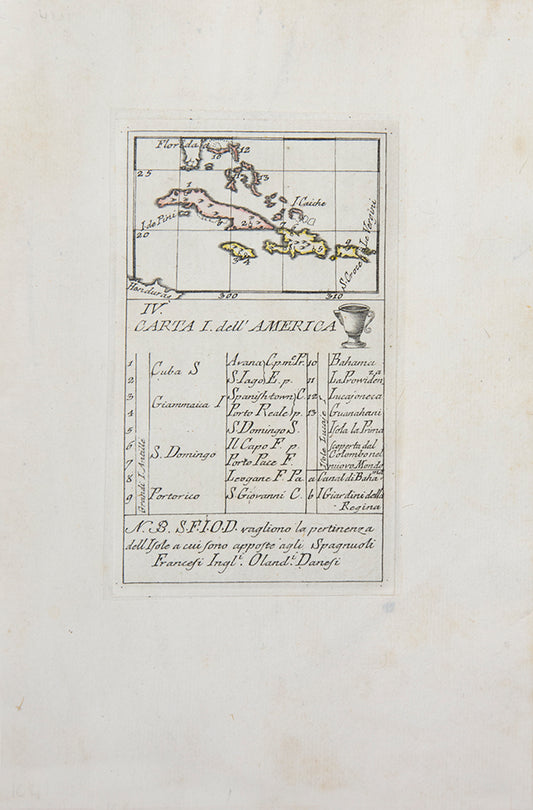 Florida
a
10
12
25
11
13
1
I Caiche
I. de Pini
b
2
20
7
6
5
8
9
3
4
S. Croce
Le Vergini
Honduras
300
310
IV.
CARTA I. dell' AMERICA
Grandi I. Antille
1 Cuba S Avana) C. p.
2 S. Iago) E. p.
3 Giammaica I Spanishtown) C.
4 Porto Reale) p.
5 S. Domingo S. Domingo S.
6 Il Capo F. p.
7 Porto Pace F.
8 Leogane F.
9 Portorico S. Giovanni C.
Isole Lucaje
10 Bahama
11 La Providenza
12 Lucajoneca
13 Guanahani
Isola la Prima
scoperta dal
Colombo nel
nuovo Mondo
a Canal di Baha.
b I Giardini della
Regina
N. B. S.F.I.O.D. vagliono la pertinenza
dell Isole a cui sono apposte agli Spagnuoli
Francesi Ingl.i Oland.i Danesi